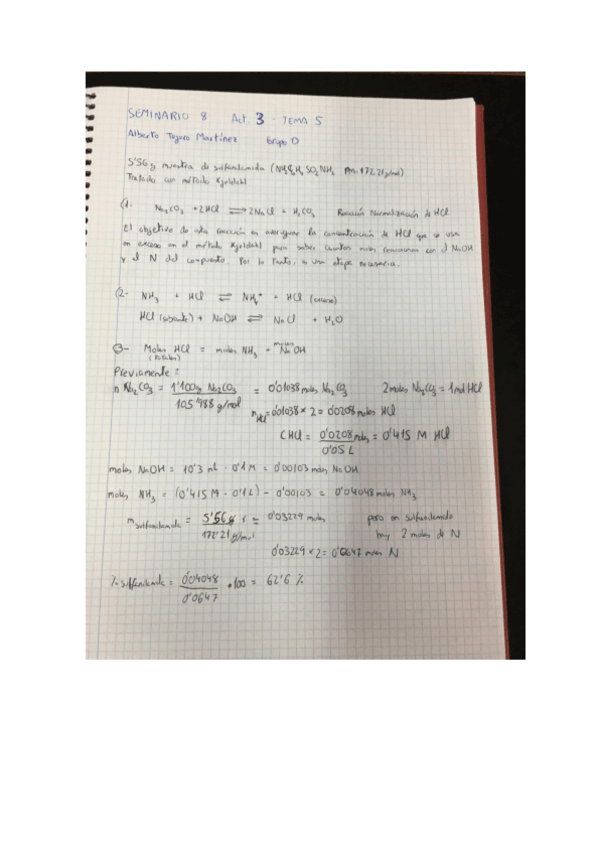 SEMINARIO 8 Act. 3 - TEMA 5
Alberto Martínez Grupo D
5'56 g muestra de sulfanilamida (NH2C6H4SO2NH2 Pm=172'21g/mol)
Tratada con método Kjeldahl
1.- Na2CO3 + 2HCl ⇌ 2NaCl + H2CO3 Reacción Normalización de HCl
El objetivo de esta reacción es averiguar la concentración de HCl que se usa
en exceso en el método Kjeldahl para saber cuantos moles reaccionan con el NaOH
y el N del compuesto. Por lo tanto, es una etapa necesaria.
2.- NH3 + HCl ⇌ NH4+ + HCl (exceso)
HCl (sobrante) + NaOH ⇌ NaCl + H2O
3- Moles HCl = moles NH3 - moles NaOH
(totales)
Previamente:
n Na2CO3 = 1'100g Na2CO3 / 105'988 g/mol = 0'01038 moles Na2CO3 2 moles Na2CO3 = 1 mol HCl
nHCl = 0'01038 × 2 = 0'0208 moles HCl
CHCl = 0'0208 moles / 0'05 L = 0'415 M HCl
moles NaOH = 10'3 ml · 0'1 M = 0'00103 moles NaOH
moles NH3 = (0'415 M · 0'1L) - 0'00103 = 0'04048 moles NH3
m sulfanilamida = 5'56g / 172'21 g/mol = 0'03229 moles pero en sulfanilamida
hay 2 moles de N
0'03229 × 2 = 0'0647 moles N
% sulfanilamida = 0'04048 / 0'0647 · 100 = 62'6 %